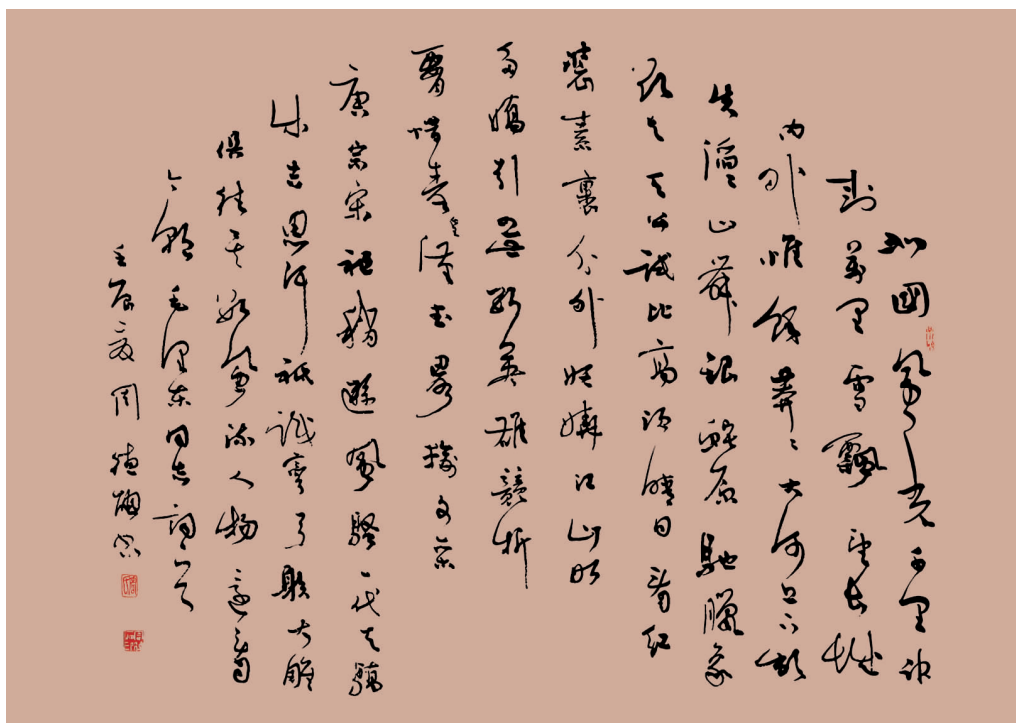 北國風光千里冰
封萬里雪飄望長城
内外惟餘莽々大河上下頓
失滔々山舞銀蛇原馳臘象
欲与天公試比高須晴日看紅
裝素裹分外妖嬈江山如此
多嬌引無數英雄競折
腰惜秦皇漢武略輸文采
唐宗宋祖稍遜風騷一代天驕
成吉思汗祇識彎弓射大雕
俱往矣數風流人物還看
今朝毛澤東同志詞一首
壬辰夏周德